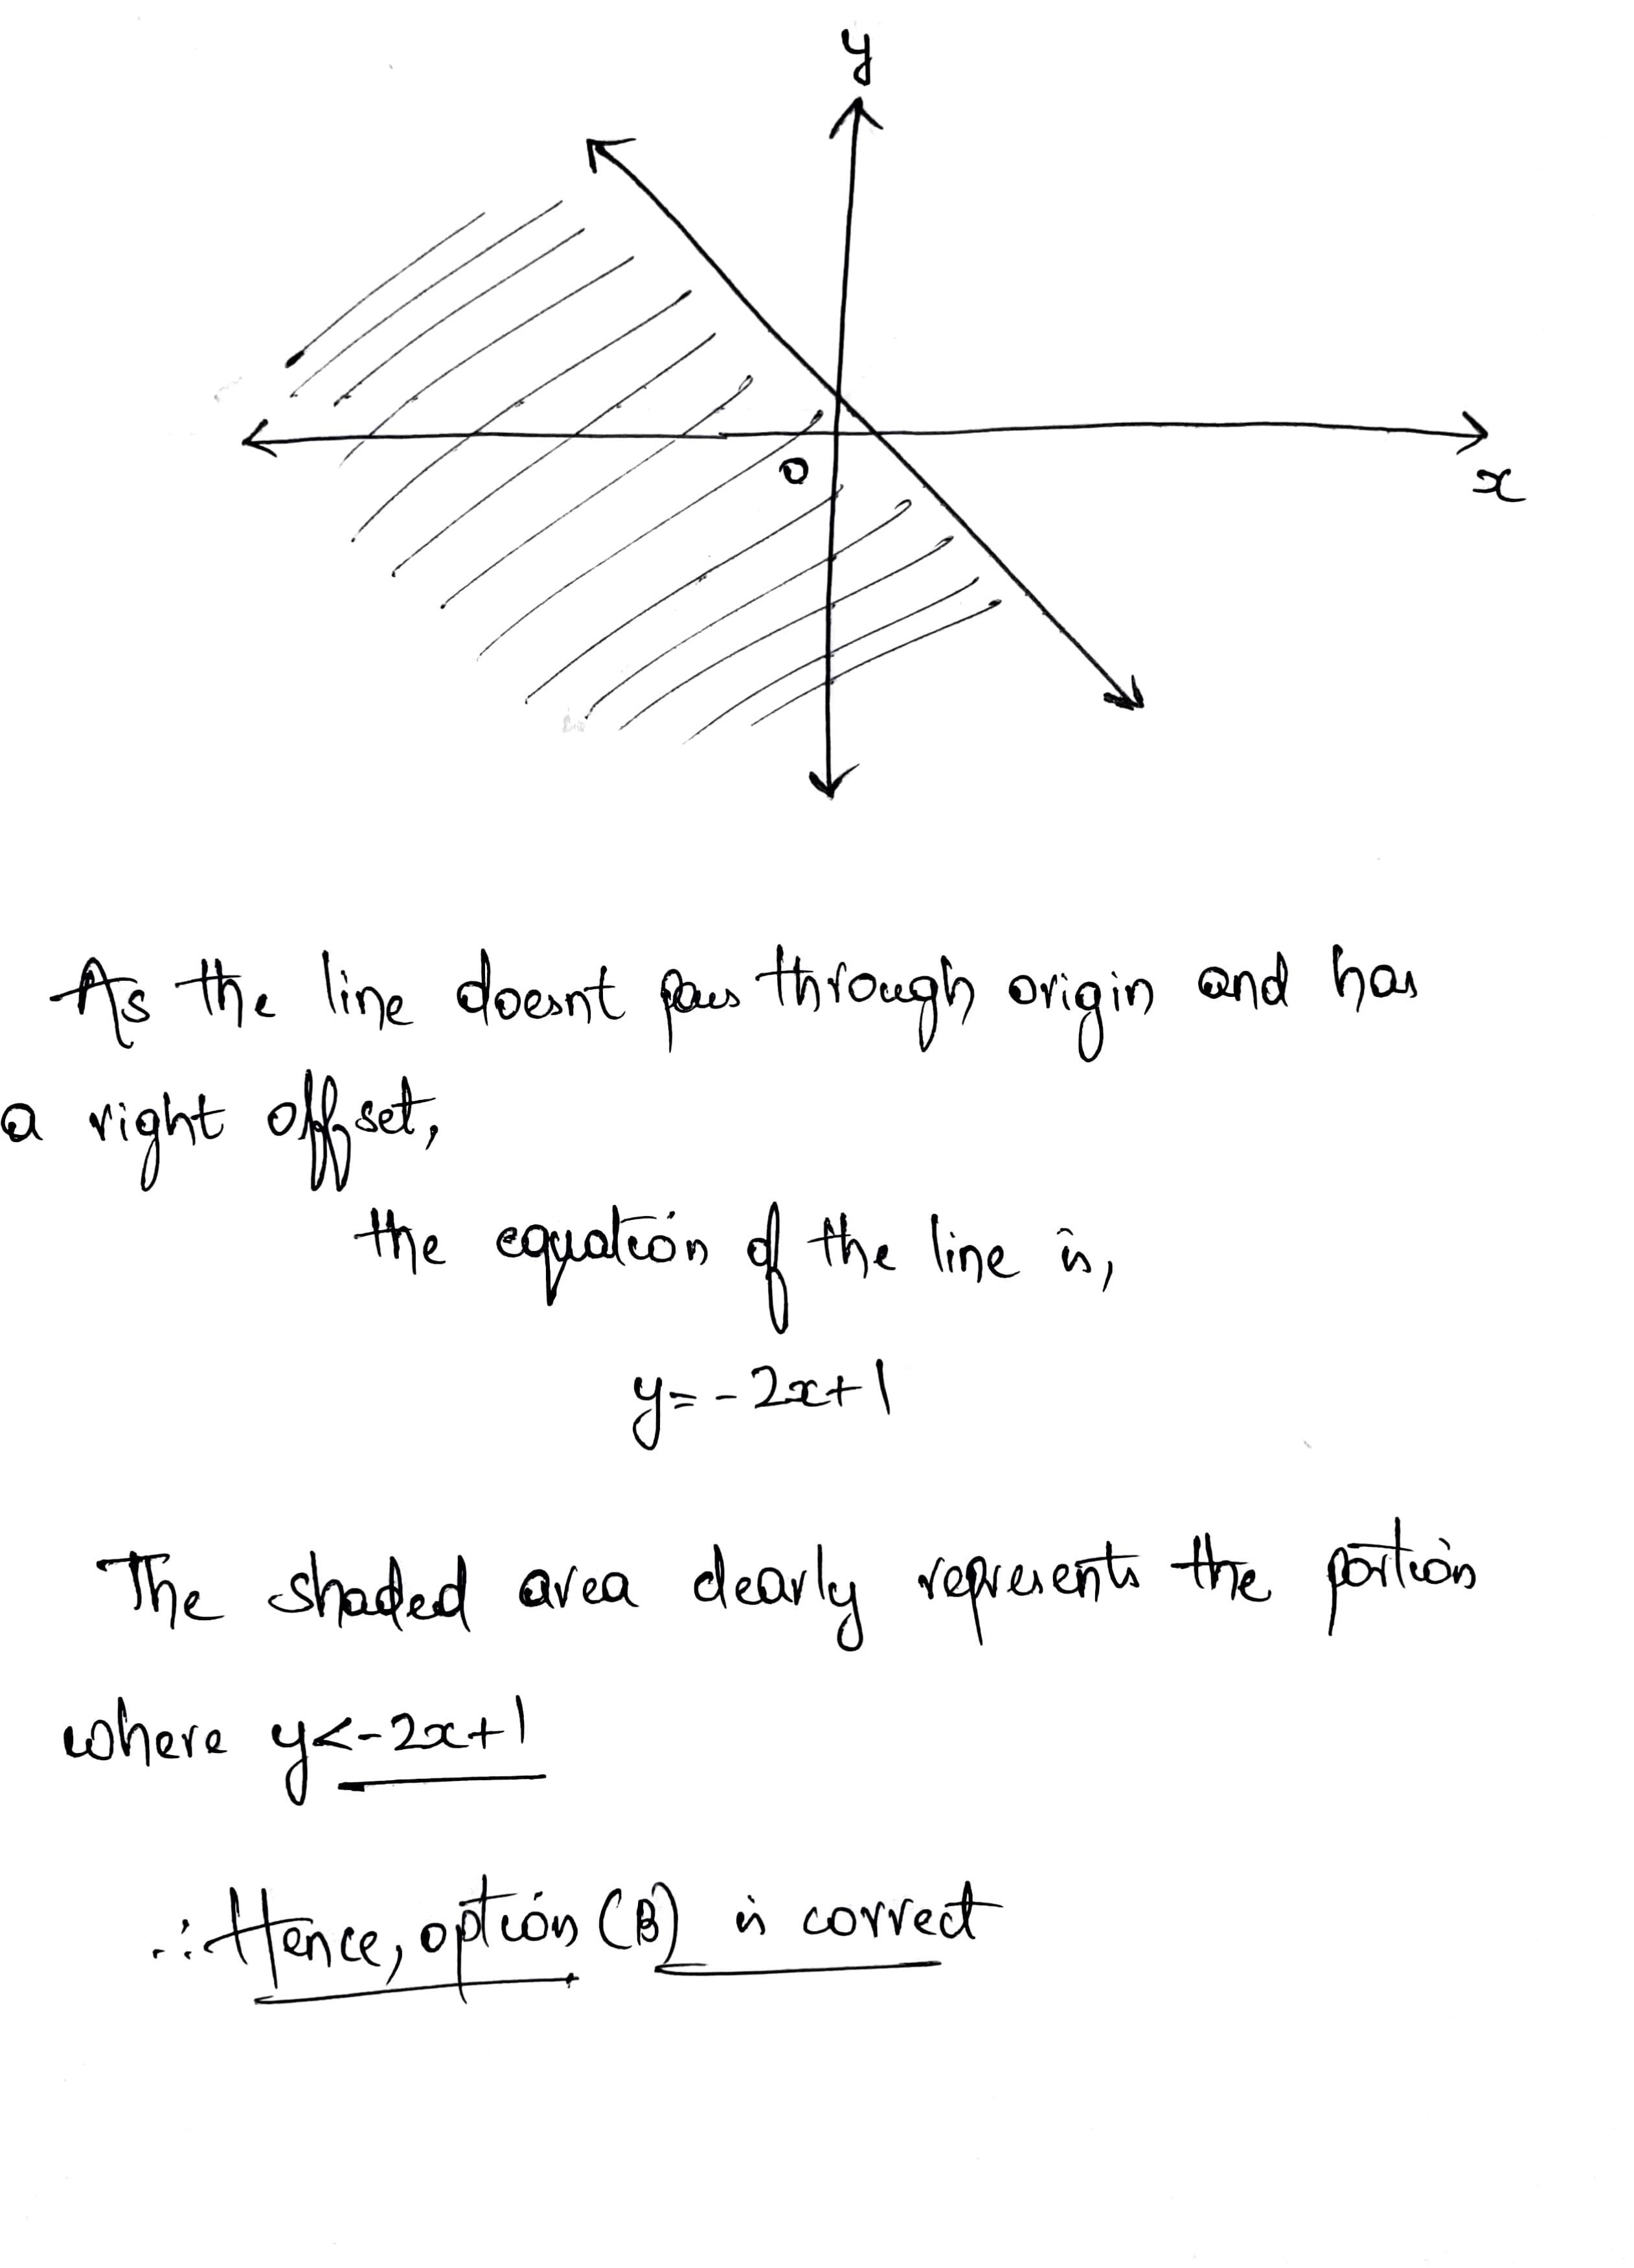 y
O
x
As the line doesnt pass through origin and has
a right offset,
the equation of the line is,
y=-2x+1
The shaded area clearly represents the portion
where y<-2x+1
∴ Hence, option (B) is correct